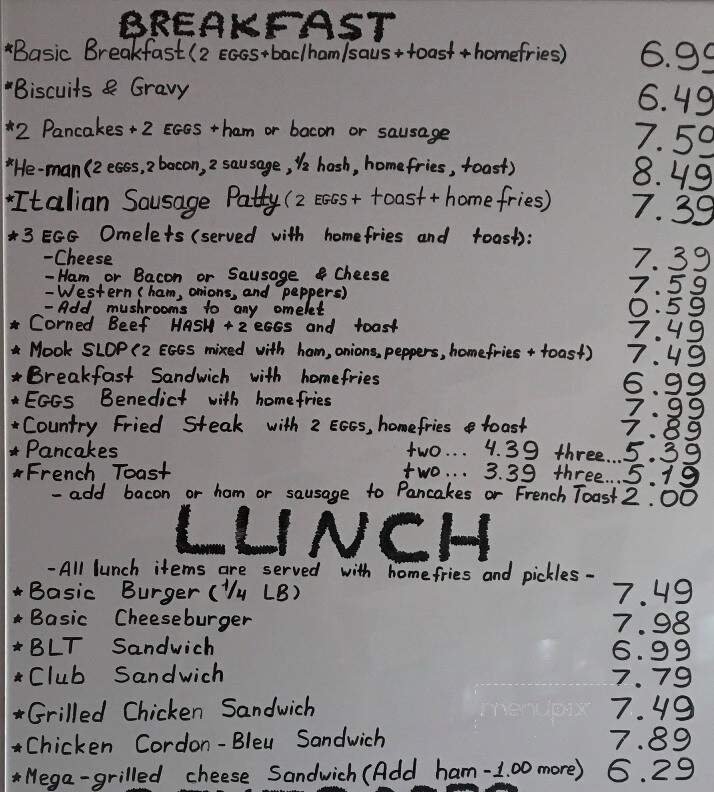 BREAKFAST
*Basic Breakfast (2 EGGS+bac/ham/saus+toast+homefries) 6.99
*Biscuits & Gravy 6.49
*2 Pancakes + 2 EGGS + ham or bacon or sausage 7.59
*He-man (2 eggs, 2 bacon, 2 sausage, 1/2 hash, homefries, toast) 8.49
*Italian Sausage Patty (2 EGGS+ toast+homefries) 7.39
*3 EGG Omelets (served with homefries and toast):
-Cheese 7.39
-Ham or Bacon or Sausage & Cheese 7.59
-Western (ham, onions, and peppers)
-Add mushrooms to any omelet 0.59
* Corned Beef HASH + 2 eggs and toast 7.49
* Mook SLOP (2 EGGS mixed with ham, onions, peppers, homefries + toast) 7.49
*Breakfast Sandwich with homefries 6.99
*EGGS Benedict with homefries 7.99
*Country Fried Steak with 2 EGGS, homefries & toast 7.89
*Pancakes two... 4.39 three...5.39
*French Toast two... 3.39 three...5.19
- add bacon or ham or sausage to Pancakes or French Toast 2.00
LUNCH
-All lunch items are served with homefries and pickles-
*Basic Burger (1/4 LB) 7.49
*Basic Cheeseburger 7.98
*BLT Sandwich 6.99
*Club Sandwich 7.79
*Grilled Chicken Sandwich 7.49
*Chicken Cordon-Bleu Sandwich 7.89
*Mega-grilled cheese Sandwich (Add ham -1.00 more) 6.29
menupix